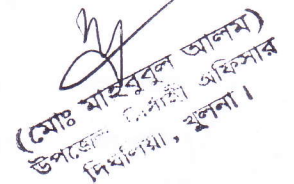 (মোঃ মাহবুবুল আলম)
উপজেলা নির্বাহী অফিসার
দিঘলিয়া, খুলনা।